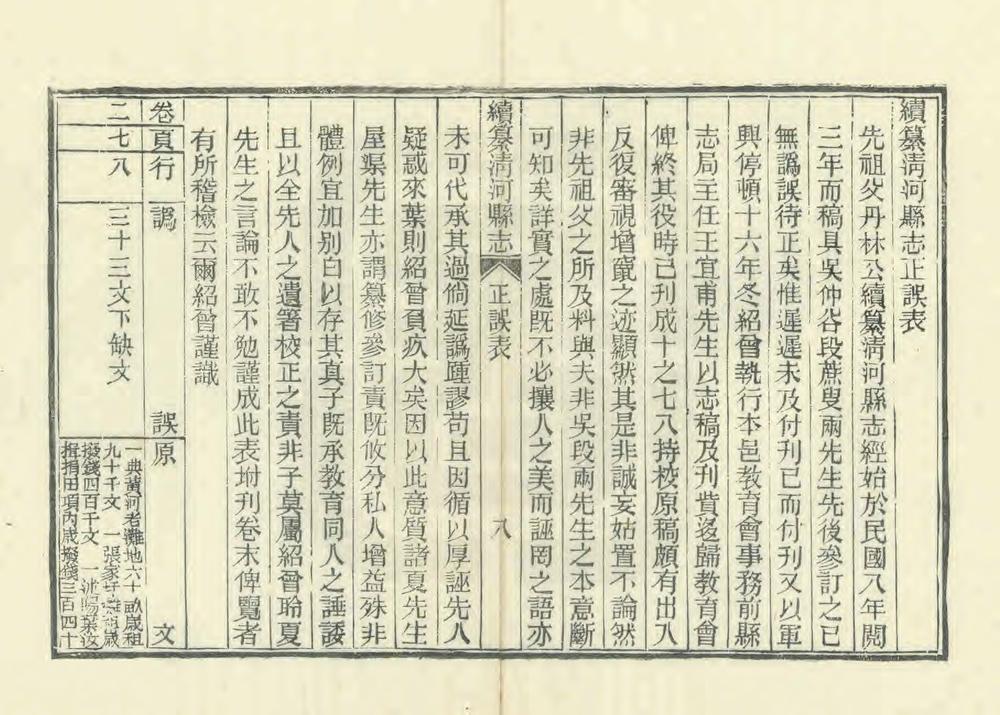 續纂淸河縣志正誤表
先祖父丹林公續纂淸河縣志經始於民國八年閱
三年而稿具吳仲谷段蔗叟兩先生先後參訂之已
無譌誤待正矣惟遲遲未及付刊已而付刊又以軍
興停頓十六年冬紹曾執行本邑教育會事務前縣
志局主任王宜甫先生以志稿及刊貲迻歸教育會
俾終其役時已刊成十之七八持校原稿頗有出入
反復審視增竄之迹顯然其是非誠妄姑置不論然
非先祖父之所及料與夫非吳段兩先生之本意斷
可知矣詳實之處旣不必攘人之美而誣罔之語亦
續纂淸河縣志 正誤表 八
未可代承其過倘延譌踵謬苟且因循以厚誣先人
疑惑來葉則紹曾負疚大矣因以此意質諸夏先生
屋渠先生亦謂纂修參訂責旣攸分私人增益殊非
體例宜加別白以存其真子旣承教育同人之諈諉
且以全先人之遺箸校正之責非子莫屬紹曾聆夏
先生之言論不敢不勉謹成此表坿刊卷末俾覽者
有所稽檢云爾紹曾謹識
卷 頁 行 譌 誤 原 文
二 七 八 三十三文下缺文 一典黃河老灘地六十畝歲租
九十千文 一張家 灘租歲
撥錢四百千文 一沭陽葉汝
揖捐田項內歲撥錢三百四十